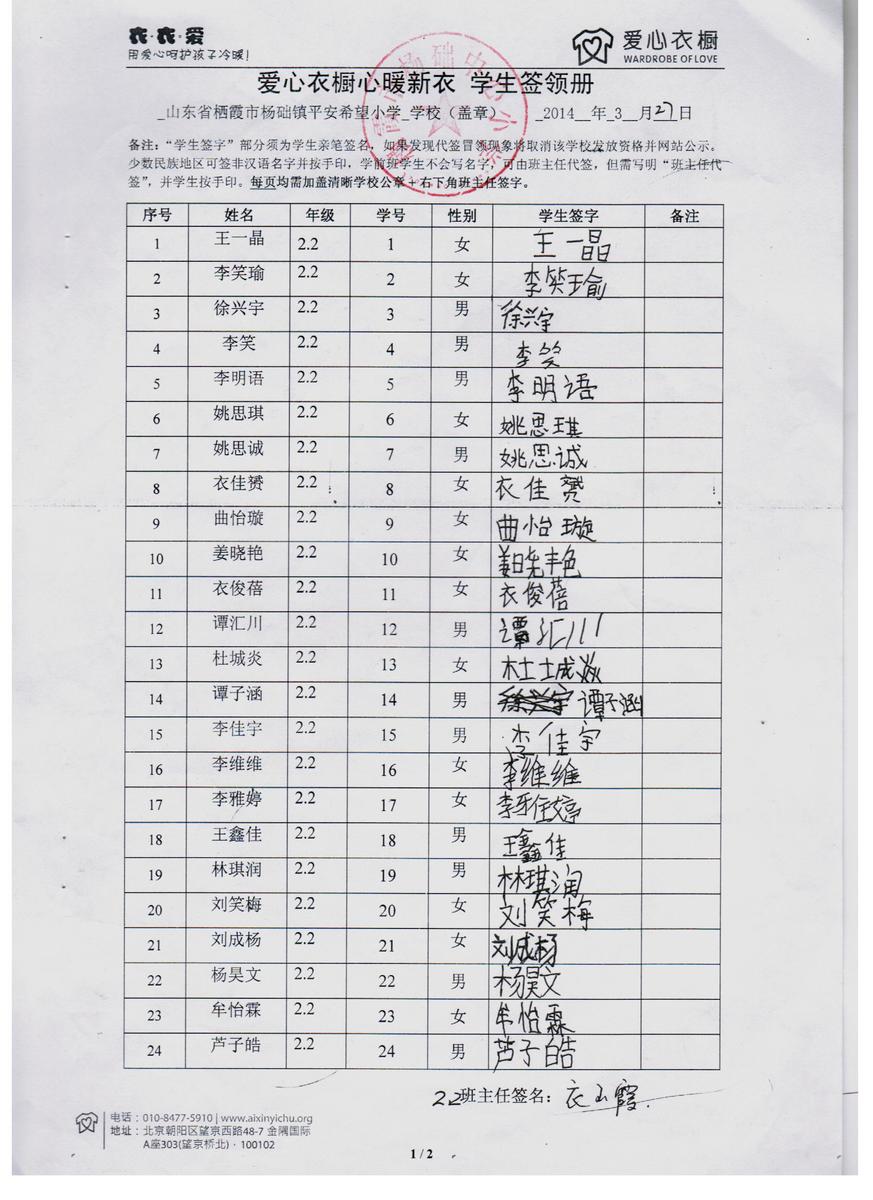 衣·衣·爱
用爱心呵护孩子冷暖!
爱心衣橱
WARDROBE OF LOVE
爱心衣橱心暖新衣 学生签领册
_山东省栖霞市杨础镇平安希望小学_学校（盖章） _2014__年_3__月27日
备注：“学生签字”部分须为学生亲笔签名，如果发现代签冒领现象将取消该学校发放资格并网站公示。
少数民族地区可签非汉语名字并按手印，学前班学生不会写名字，可由班主任代签，但需写明“班主任代
签”，并学生按手印。每页均需加盖清晰学校公章+右下角班主任签字。
序号 姓名 年级 学号 性别 学生签字 备注
1 王一晶 2.2 1 女 王一晶
2 李笑瑜 2.2 2 女 李笑瑜
3 徐兴宇 2.2 3 男 徐兴宇
4 李笑 2.2 4 男 李笑
5 李明语 2.2 5 男 李明语
6 姚思琪 2.2 6 女 姚思琪
7 姚思诚 2.2 7 男 姚思诚
8 衣佳赟 2.2 8 女 衣佳赟
9 曲怡璇 2.2 9 女 曲怡璇
10 姜晓艳 2.2 10 女 姜晓艳
11 衣俊蓓 2.2 11 女 衣俊蓓
12 谭汇川 2.2 12 男 谭汇川
13 杜城炎 2.2 13 女 杜城炎
14 谭子涵 2.2 14 男 徐兴宇 谭子涵
15 李佳宇 2.2 15 男 李佳宇
16 李维维 2.2 16 女 李维维
17 李雅婷 2.2 17 女 李雅婷
18 王鑫佳 2.2 18 男 王鑫佳
19 林琪润 2.2 19 男 林琪润
20 刘笑梅 2.2 20 女 刘笑梅
21 刘成杨 2.2 21 女 刘成杨
22 杨昊文 2.2 22 男 杨昊文
23 牟怡霖 2.2 23 女 牟怡霖
24 芦子皓 2.2 24 男 芦子皓
2.2班主任签名：衣玉霞
电话：010-8477-5910 | www.aixinyichu.org
地址：北京朝阳区望京西路48-7 金隅国际
A座303(望京桥北)·100102
1 / 2